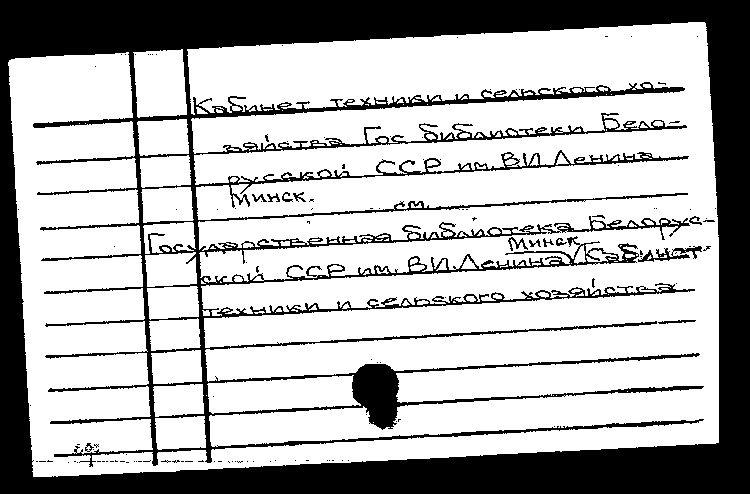 Кабинет техники и сельского хо-
зяйства Гос библиотеки Бело-
русской ССР им. В.И. Ленина.
Минск.
см.
Государственная библиотека Белорус-
ской ССР им. В.И. Ленина, Минск Кабинет
техники и сельского хозяйства